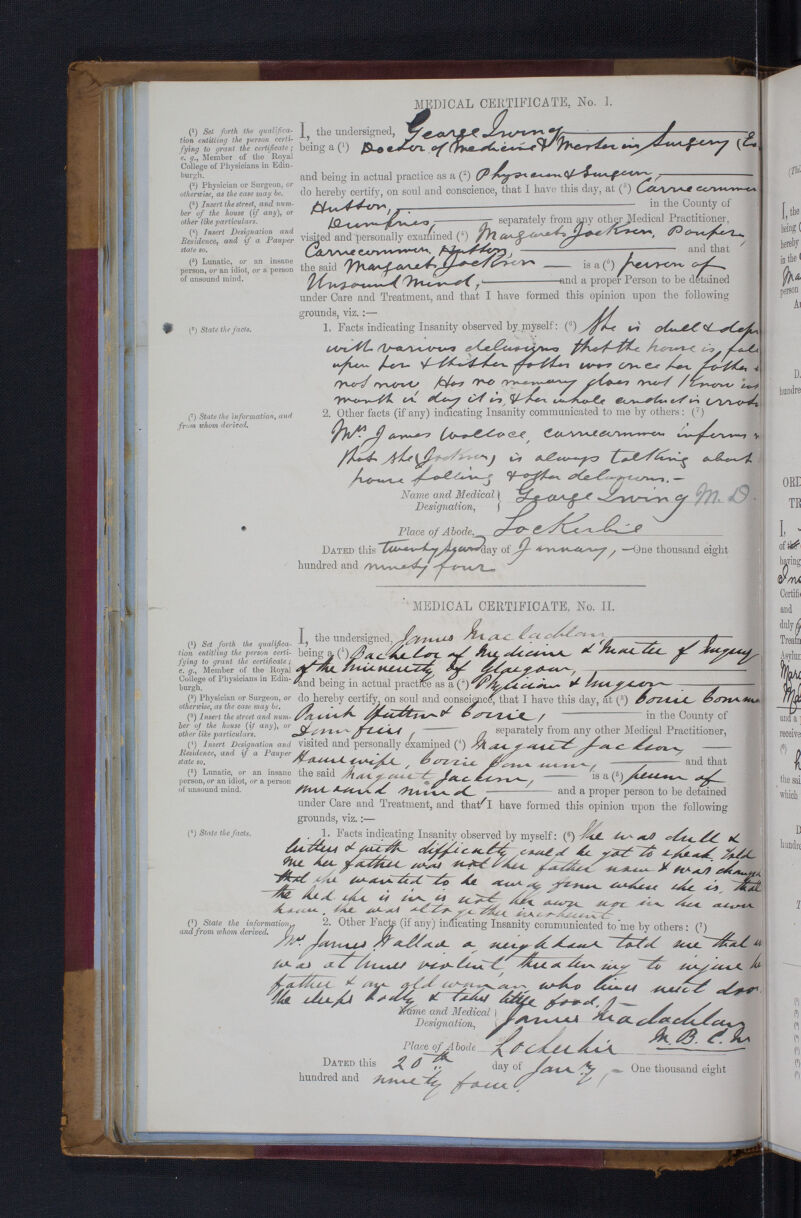 MEDICAL CERTIFICATE, No. I.
(¹) Set forth the qualifica-
tion entitling the person certi-
fying to grant the certificate;
e. g., Member of the Royal
College of Physicians in Edin-
burgh.
(²) Physician or Surgeon, or
otherwise, as the case may be.
(³) Insert the street, and num-
ber of the house (if any), or
other like particulars.
(⁴) Insert Designation and
Residence, and if a Pauper
state so.
(⁵) Lunatic, or an insane
person, or an idiot, or a person
of unsound mind.
I, the undersigned, George Irving
being a (¹) Doctor of Medicine & Master in Surgery
and being in actual practice as a (²) Physician & Surgeon,
do hereby certify, on soul and conscience, that I have this day, at (³)
Hutton, in the County of
Dumfries, separately from any other Medical Practitioner,
visited and personally examined (⁴) Margaret Jackson, Pauper,
Hutton, and that
the said Margaret Jackson is a (⁵) person of
Unsound Mind, and a proper Person to be detained
under Care and Treatment, and that I have formed this opinion upon the following
grounds, viz.:—
(⁶) State the facts.
1. Facts indicating Insanity observed by myself: (⁶) She is dull &
with various delusions that the house is
upon her & that her father was once her father
not now Has no memory does not know
month or day it is & her whole conduct is
(⁷) State the information, and
from whom derived.
2. Other facts (if any) indicating Insanity communicated to me by others: (⁷)
Mrs. James Wallace, informs
that she (Jackson) is always talking about
house falling & other delusions.—
Name and Medical
Designation,
George Irving M.D.
Place of Abode, Lockerbie
DATED this twenty second day of January, —One thousand eight
hundred and ninety four
MEDICAL CERTIFICATE, No. II.
(¹) Set forth the qualifica-
tion entitling the person certi-
fying to grant the certificate;
e. g., Member of the Royal
College of Physicians in Edin-
burgh.
(²) Physician or Surgeon, or
otherwise, as the case may be.
(³) Insert the street and num-
ber of the house (if any), or
other like particulars.
(⁴) Insert Designation and
Residence, and if a Pauper
state so.
(⁵) Lunatic, or an insane
person, or an idiot, or a person
of unsound mind.
I, the undersigned, James Maclachlan,
being a (¹) Bachelor of Medicine & Master of Surgery
of the University of Glasgow,
and being in actual practice as a (²) Physician & Surgeon
do hereby certify, on soul and conscience, that I have this day, at (³) Corrie
Parish Hutton & Corrie, in the County of
Dumfries, separately from any other Medical Practitioner,
visited and personally examined (⁴) Margaret Jackson,
Housewife, Corrie Common, and that
the said Margaret Jackson, is a (⁵) person of
unsound mind and a proper person to be detained
under Care and Treatment, and that I have formed this opinion upon the following
grounds, viz.:—
(⁶) State the facts.
1. Facts indicating Insanity observed by myself: (⁶) She was dull &
listless & with difficulty could be got to speak. Told
me her father was not her father now & was changed
that she wanted to be away from where she is. That
the bed she is in is not her own nor in her own
house. She was altogether incoherent.
(⁷) State the information,
and from whom derived.
2. Other Facts (if any) indicating Insanity communicated to me by others: (⁷)
Mrs. James Wallace a neighbour told me that
was at times violent, threatening to injure
father & an old woman who lives next door
She sleeps badly & takes little food.
Name and Medical
Designation,
James Maclachlan
M.B. C.M
Place of Abode Lockerbie
DATED this 20th day of Jany, — One thousand eight
hundred and ninety four.